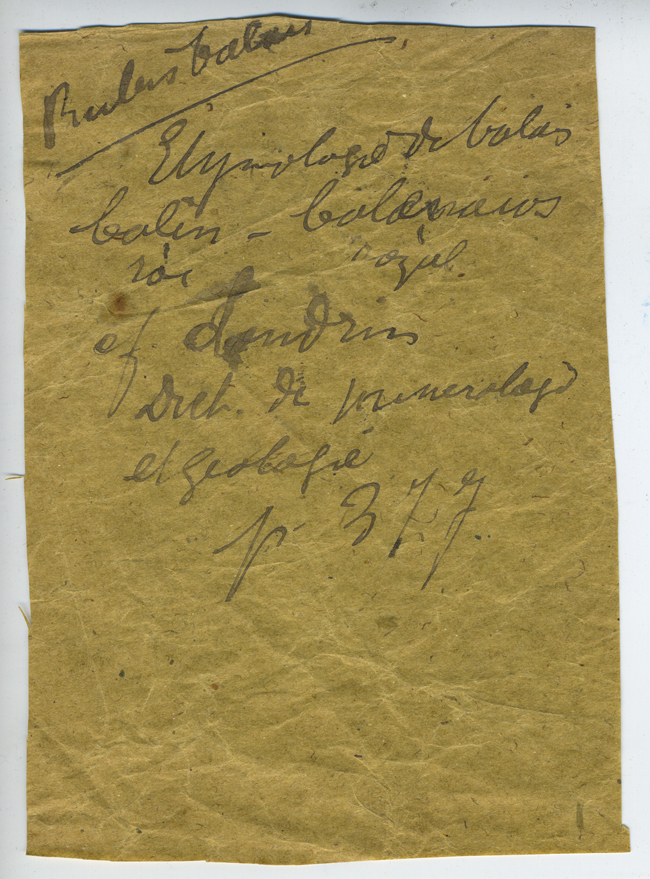 Rubis balais
Etymologie de balais
balen - balenaios
roi royal.
cf Landrin
Dict. de minéralogie
et géologie
p 377.